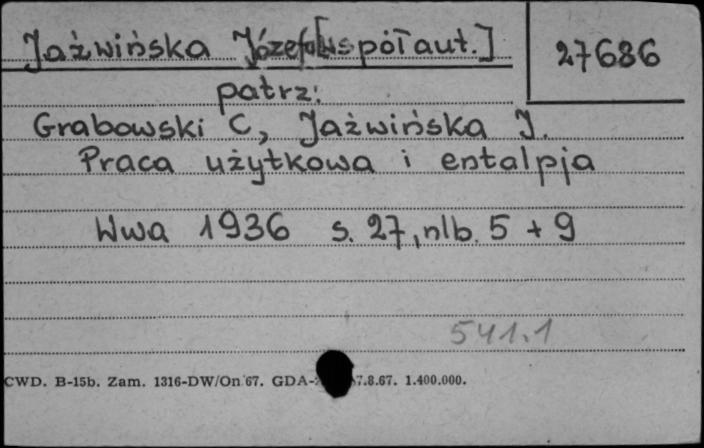 Jaźwińska Józefa [współaut.]
27686
patrz:
Grabowski C, Jaźwińska J.
Praca użytkowa i entalpja
Wwa 1936 s. 27, nlb. 5 + 9
541.1
CWD. B-15b. Zam. 1316-DW/On 67. GDA- 7.8.67. 1.400.000.